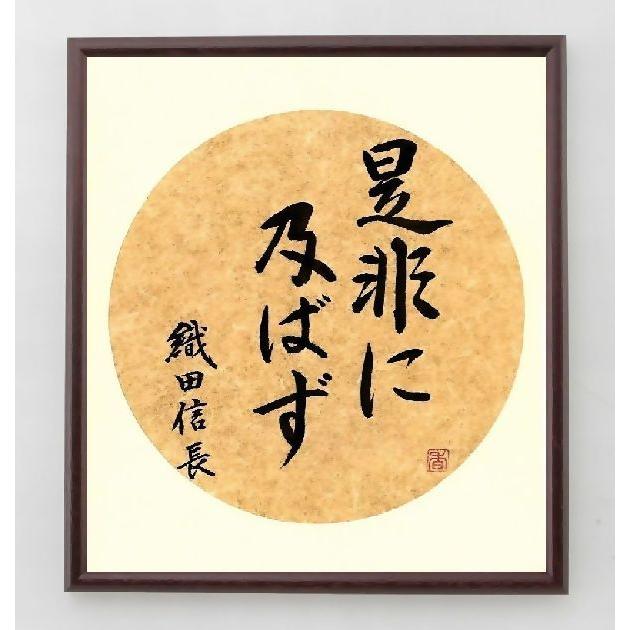 是非に
及ばず
織田信長